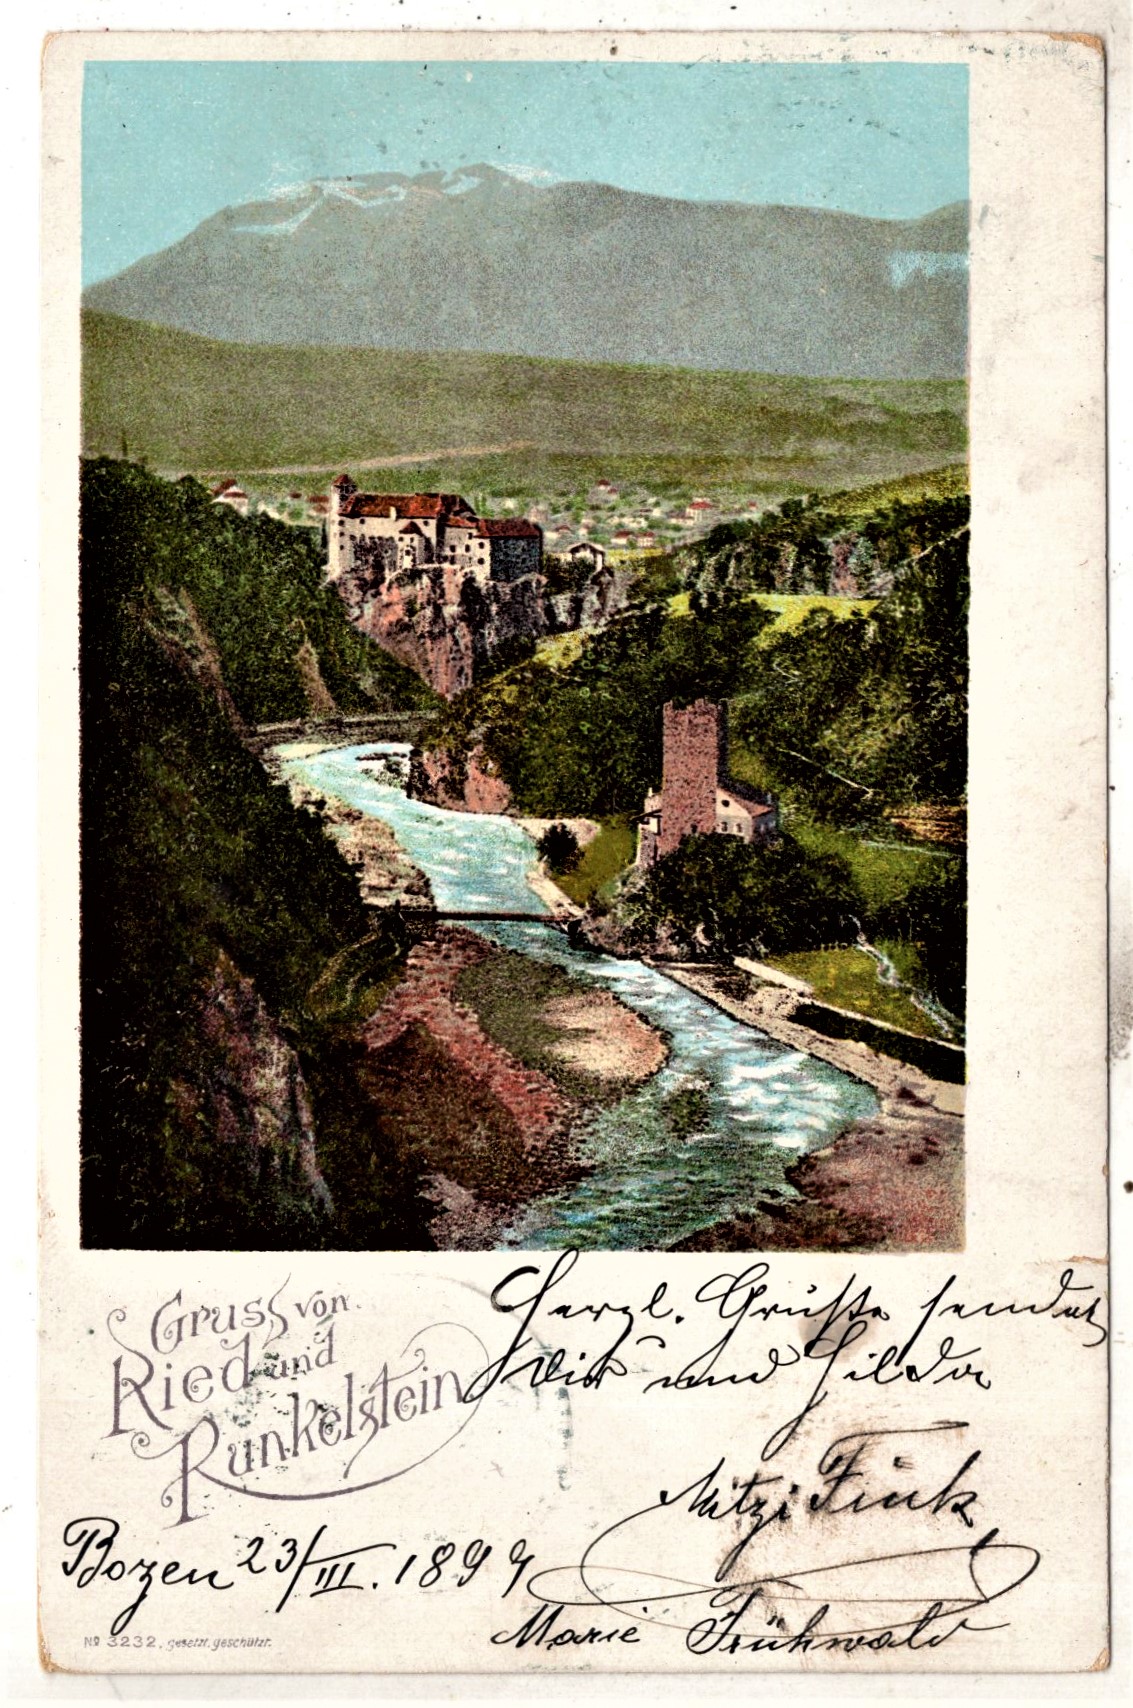 Gruss von
Ried und
Runkelstein
Herzl. Grüße sendet
Dir und Hilda
Mitzi Fink
Bozen 23/III. 1899
Marie Frühwald
No 3232. gesetzl. geschützt.